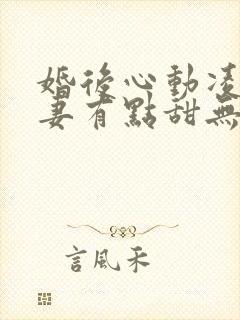 婚後心動凌
妻有點甜無
言風禾